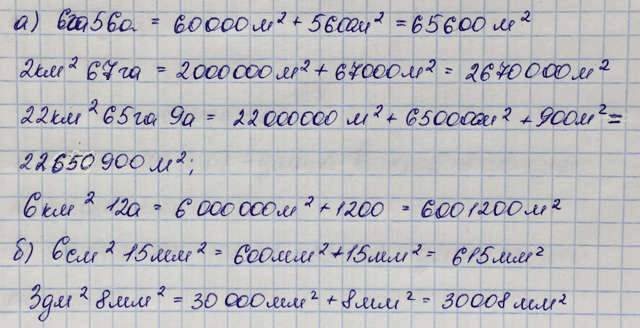 а) 6га56а = 60000м² + 5600м² = 65600 м²
2км² 67га = 2000000м² + 67000м² = 2670000м²
22км² 65га 9а = 22000000 м² + 650000м² + 900м² =
22650900м²;
6км² 12а = 6000000м² + 1200 = 6001200м²
б) 6см² 15мм² = 600мм² + 15мм² = 615мм²
3дм² 8мм² = 30000мм² + 8мм² = 30008мм²